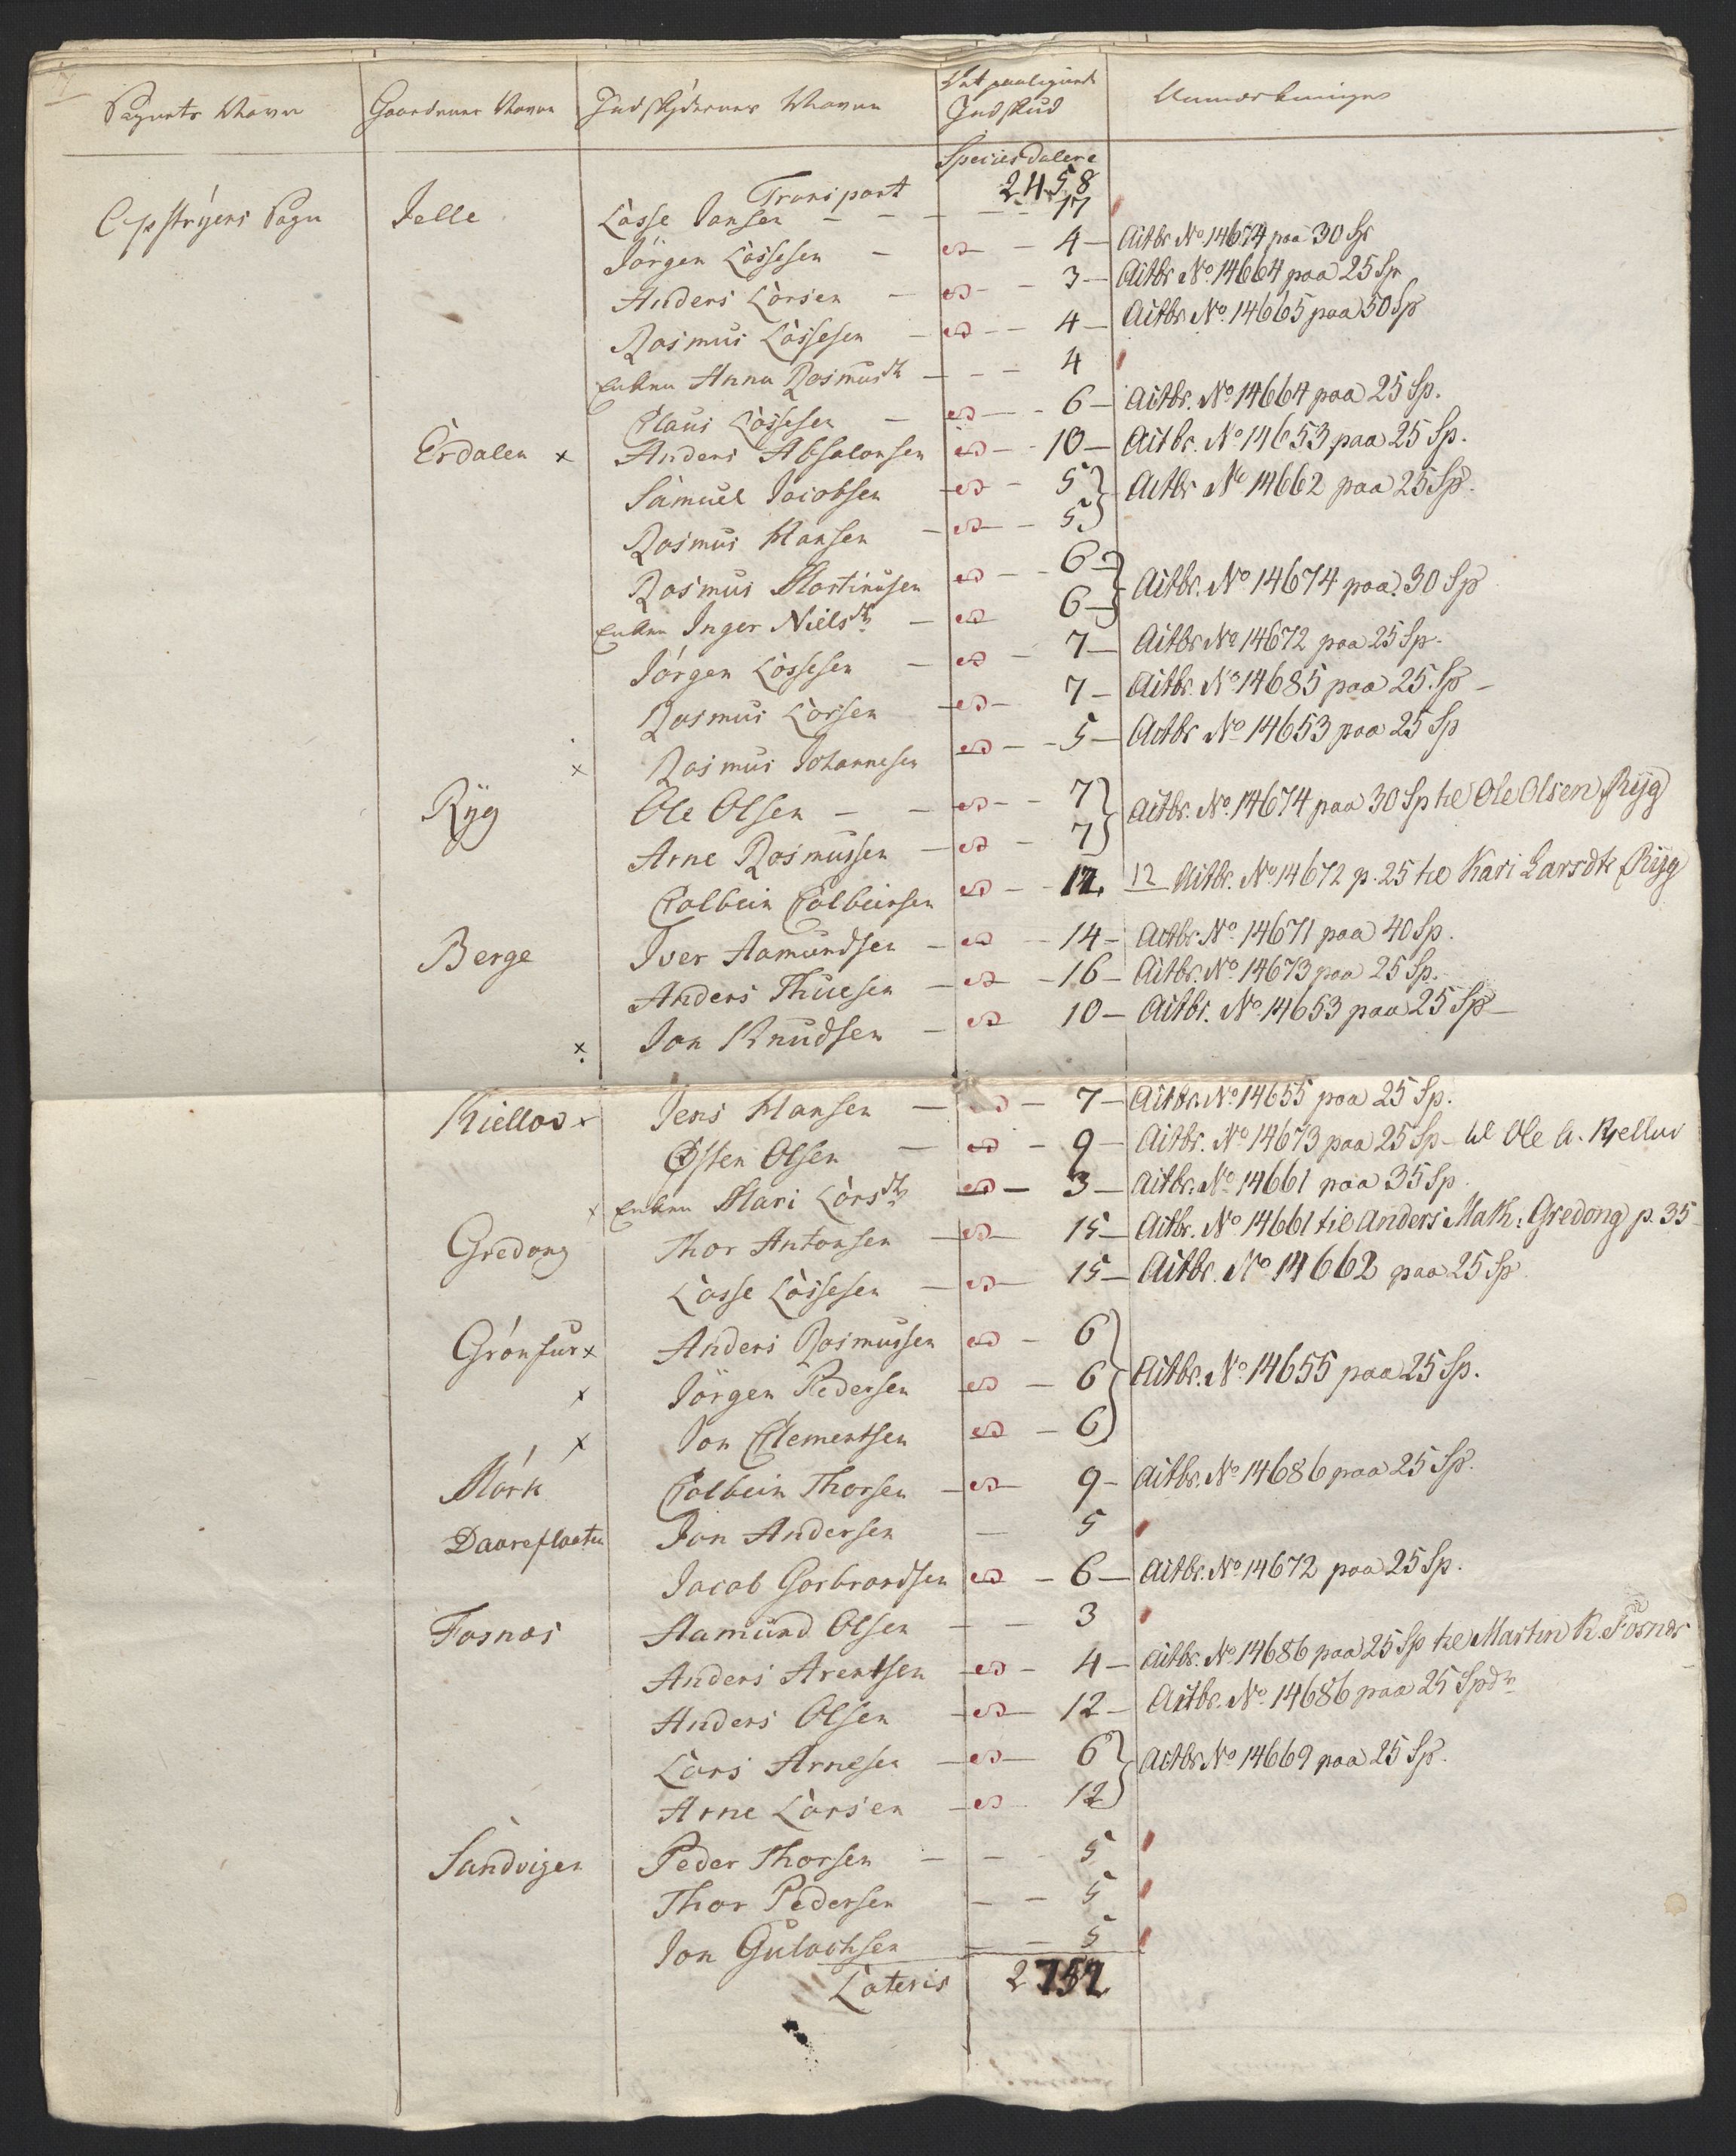 Sognets Navn Gaardenes Navn Indskydernes Navne Det paalignede Indskud Anmærkninger
Species Dalere
Transport 2458
Opstryens Sogn Jelle Lasse Jansen - - - 17
Jörgen Lassesen - - 4 - Actbr No 14674 paa 30 Sp
Anders Larsen - - 3 - Actbr No. 14664 paa 25 Sp
Rasmus Lassesen - - 4 - Actbr No. 14665 paa 50 Sp
Enken Anna Rasmusdtr - - 4
Claus Lassesen - - 6 - Actbr. No 14664 paa 25 Sp.
Erdalen x Anders Absalonsen - 10 - Actbr. No 14653 paa 25 Sp.
Samuel Jacobsen - 5 } Actbr No 14662 paa 25 Sp.
Rasmus Hansen - 5 }
Rasmus Martinusen - 6 } Actbr. No 14674 paa 30 Sp
Enken Inger Nielsdtr - 6 }
Jörgen Lassesen - 7 - Actbr No 14672 paa 25 Sp.
Rasmus Larsen - 7 - Actbr. No 14685 paa 25. Sp -
x Rasmus Johannesen - 5 - Actbr No 14653 paa 25 Sp
Ryg Ole Olsen - - 7 } Actbr. No. 14674 paa 30 Sp til Ole Olsen Ryg
Arne Rasmussen - 7 }
Colbein Colbeinsen - 12 12 Actbr. No. 14672 p. 25 til Kari Larsdtr Ryg
Berge Iver Aamundsen - 14 - Actbr No. 14671 paa 40 Sp.
Anders Thuesen - 16 - Actbr. No 14673 paa 25 Sp.
x Jon Knudsen - 10 - Actbr. No 14653 paa 25 Sp -
Kiellos x Jens Hansen - 7 - Actbr. No 14655 paa 25 Sp.
Østen Olsen - 9 - Actbr. No 14673 paa 25 Sp - til Ole A. Kjellus
x Enken Mari Larsdtr - 3 - Actbr. No 14661 paa 35 Sp
Gredong Thor Antonsen - 15 - Actbr. No 14661 til Anders Math: Gredong p. 35
Lasse Lassesen - 15 - Actbr. No 14662 paa 25 Sp
Grönfur x Anders Rasmussen - 6 }
x Jörgen Pedersen - 6 } Actbr. No 14655 paa 25 Sp.
x Jon Clementsen - 6 }
Mörk Colbein Thorsen - 9 - Actbr. No 14686 paa 25 Sp.
Daareflaaten Jon Andersen - 5
Jacob Garbrandsen - 6 - Actbr. No 14672 paa 25 Sp.
Fosnæs Aamund Olsen - - 3
Anders Arentsen - 4 - Actbr. No 14686 paa 25 Sp til Martin K. Fosnæs
Anders Olsen - 12 - Actbr. No. 14686 paa 25 Spdr
Lars Arnesen - 6 } Actbr. No 14669 paa 25 Sp.
Arne Larsen - 12 }
Sandvigen Peder Thorsen - - 5
Thor Pedersen - - 5
Jon Gulachsen - 5
Lateris 2752